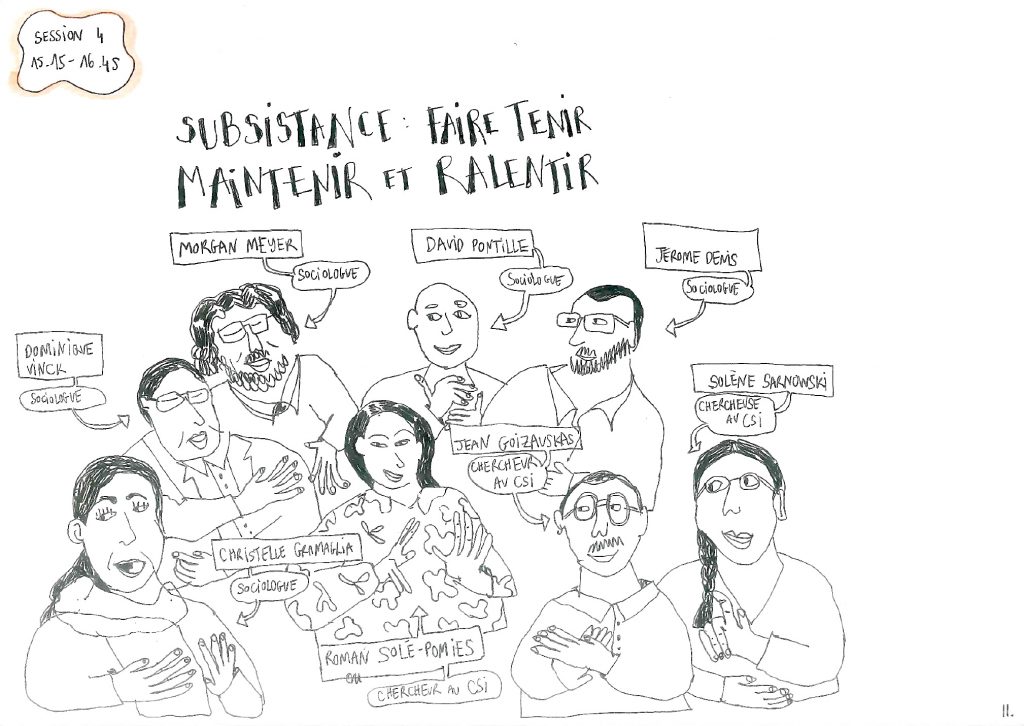 SESSION 4
15.15 - 16.45
SUBSISTANCE : FAIRE TENIR
MAINTENIR ET RALENTIR
MORGAN MEYER
SOCIOLOGUE
DAVID PONTILLE
SOCIOLOGUE
JÉROME DENIS
SOCIOLOGUE
DOMINIQUE
VINCK
SOCIOLOGUE
SOLÈNE SARNOWSKI
CHERCHEUSE
AU CSI
JEAN GOIZAUSKAS
CHERCHEUR
AU CSI
CHRISTELLE GRAMAGLIA
SOCIOLOGUE
ROMAN SOLE-POMIES
OU
CHERCHEUR AU CSI
11.